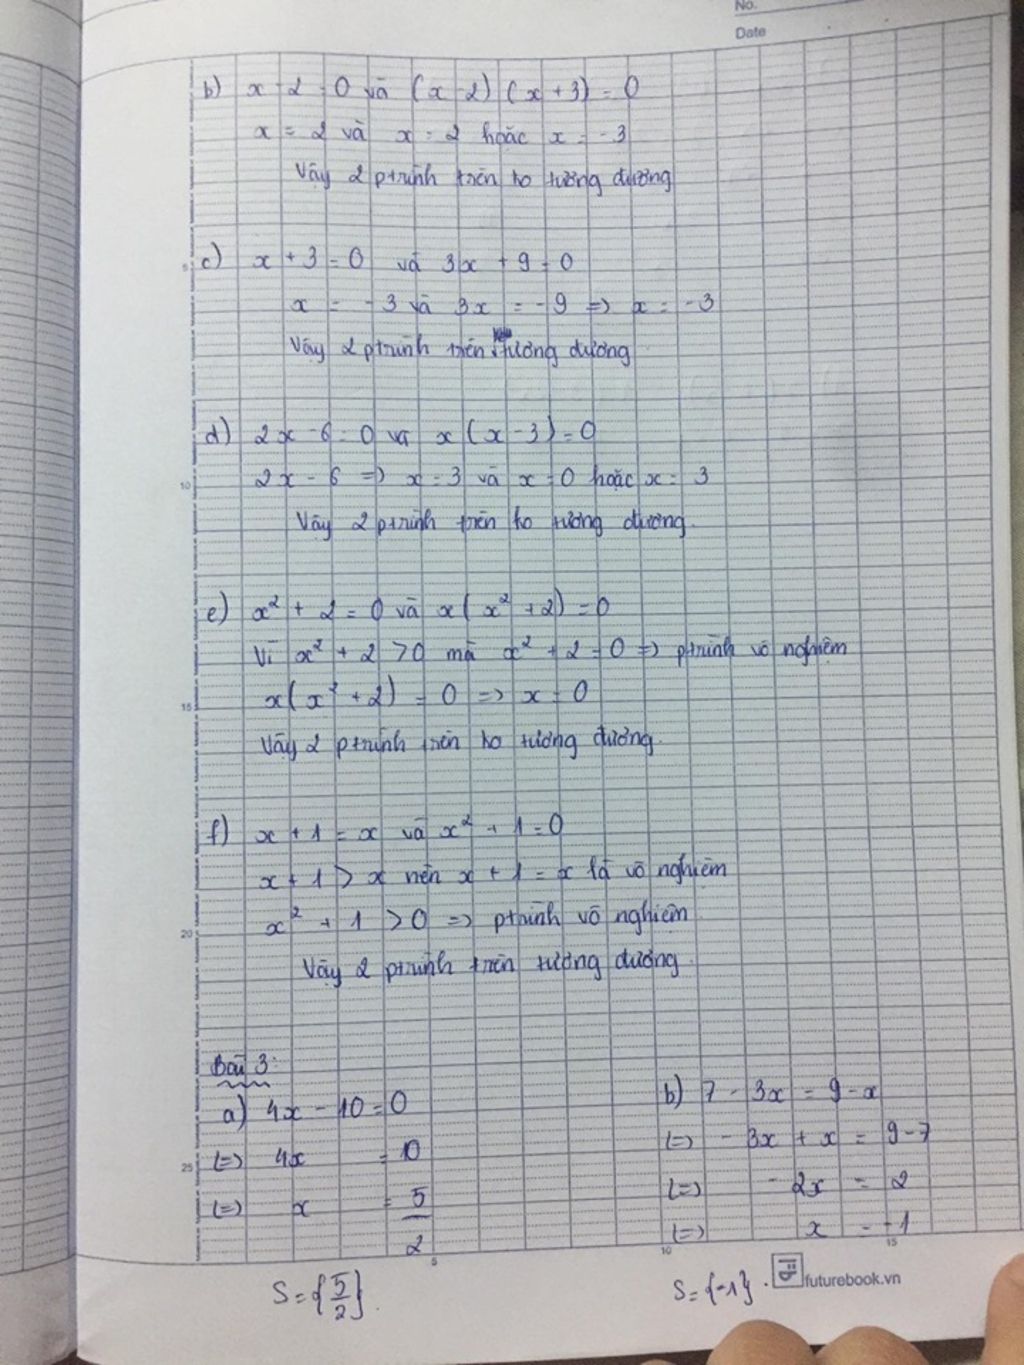 No.
Date
b) x - 2 = 0 và (x - 2) (x + 3) = 0
x = 2 và x = 2 hoặc x = -3
Vậy 2 ptrình trên ko tương đương
c) x + 3 = 0 và 3x + 9 = 0
x = -3 và 3x = -9 => x = -3
Vậy 2 ptrình trên tương đương
d) 2x - 6 = 0 và x (x - 3) = 0
2x - 6 => x = 3 và x = 0 hoặc x = 3
Vậy 2 ptrình trên ko tương đương.
e) x² + 2 = 0 và x( x² + 2) = 0
Vì x² + 2 > 0 mà x² + 2 = 0 => ptrình vô nghiệm
x( x² + 2) = 0 => x = 0
Vậy 2 ptrình trên ko tương đương.
f) x + 1 = x và x² + 1 = 0
x + 1 > x nên x + 1 = x là vô nghiệm
x² + 1 > 0 => ptrình vô nghiệm
Vậy 2 ptrình trên tương đương.
Bài 3:
a) 4x - 10 = 0
(=) 4x = 10
(=) x = 5/2
S = {5/2}.
b) 7 - 3x = 9 - x
(=) - 3x + x = 9 - 7
(=) - 2x = 2
(=) x = -1
S = {-1}.
futurebook.vn
5
10
15
20
25
5
10
15